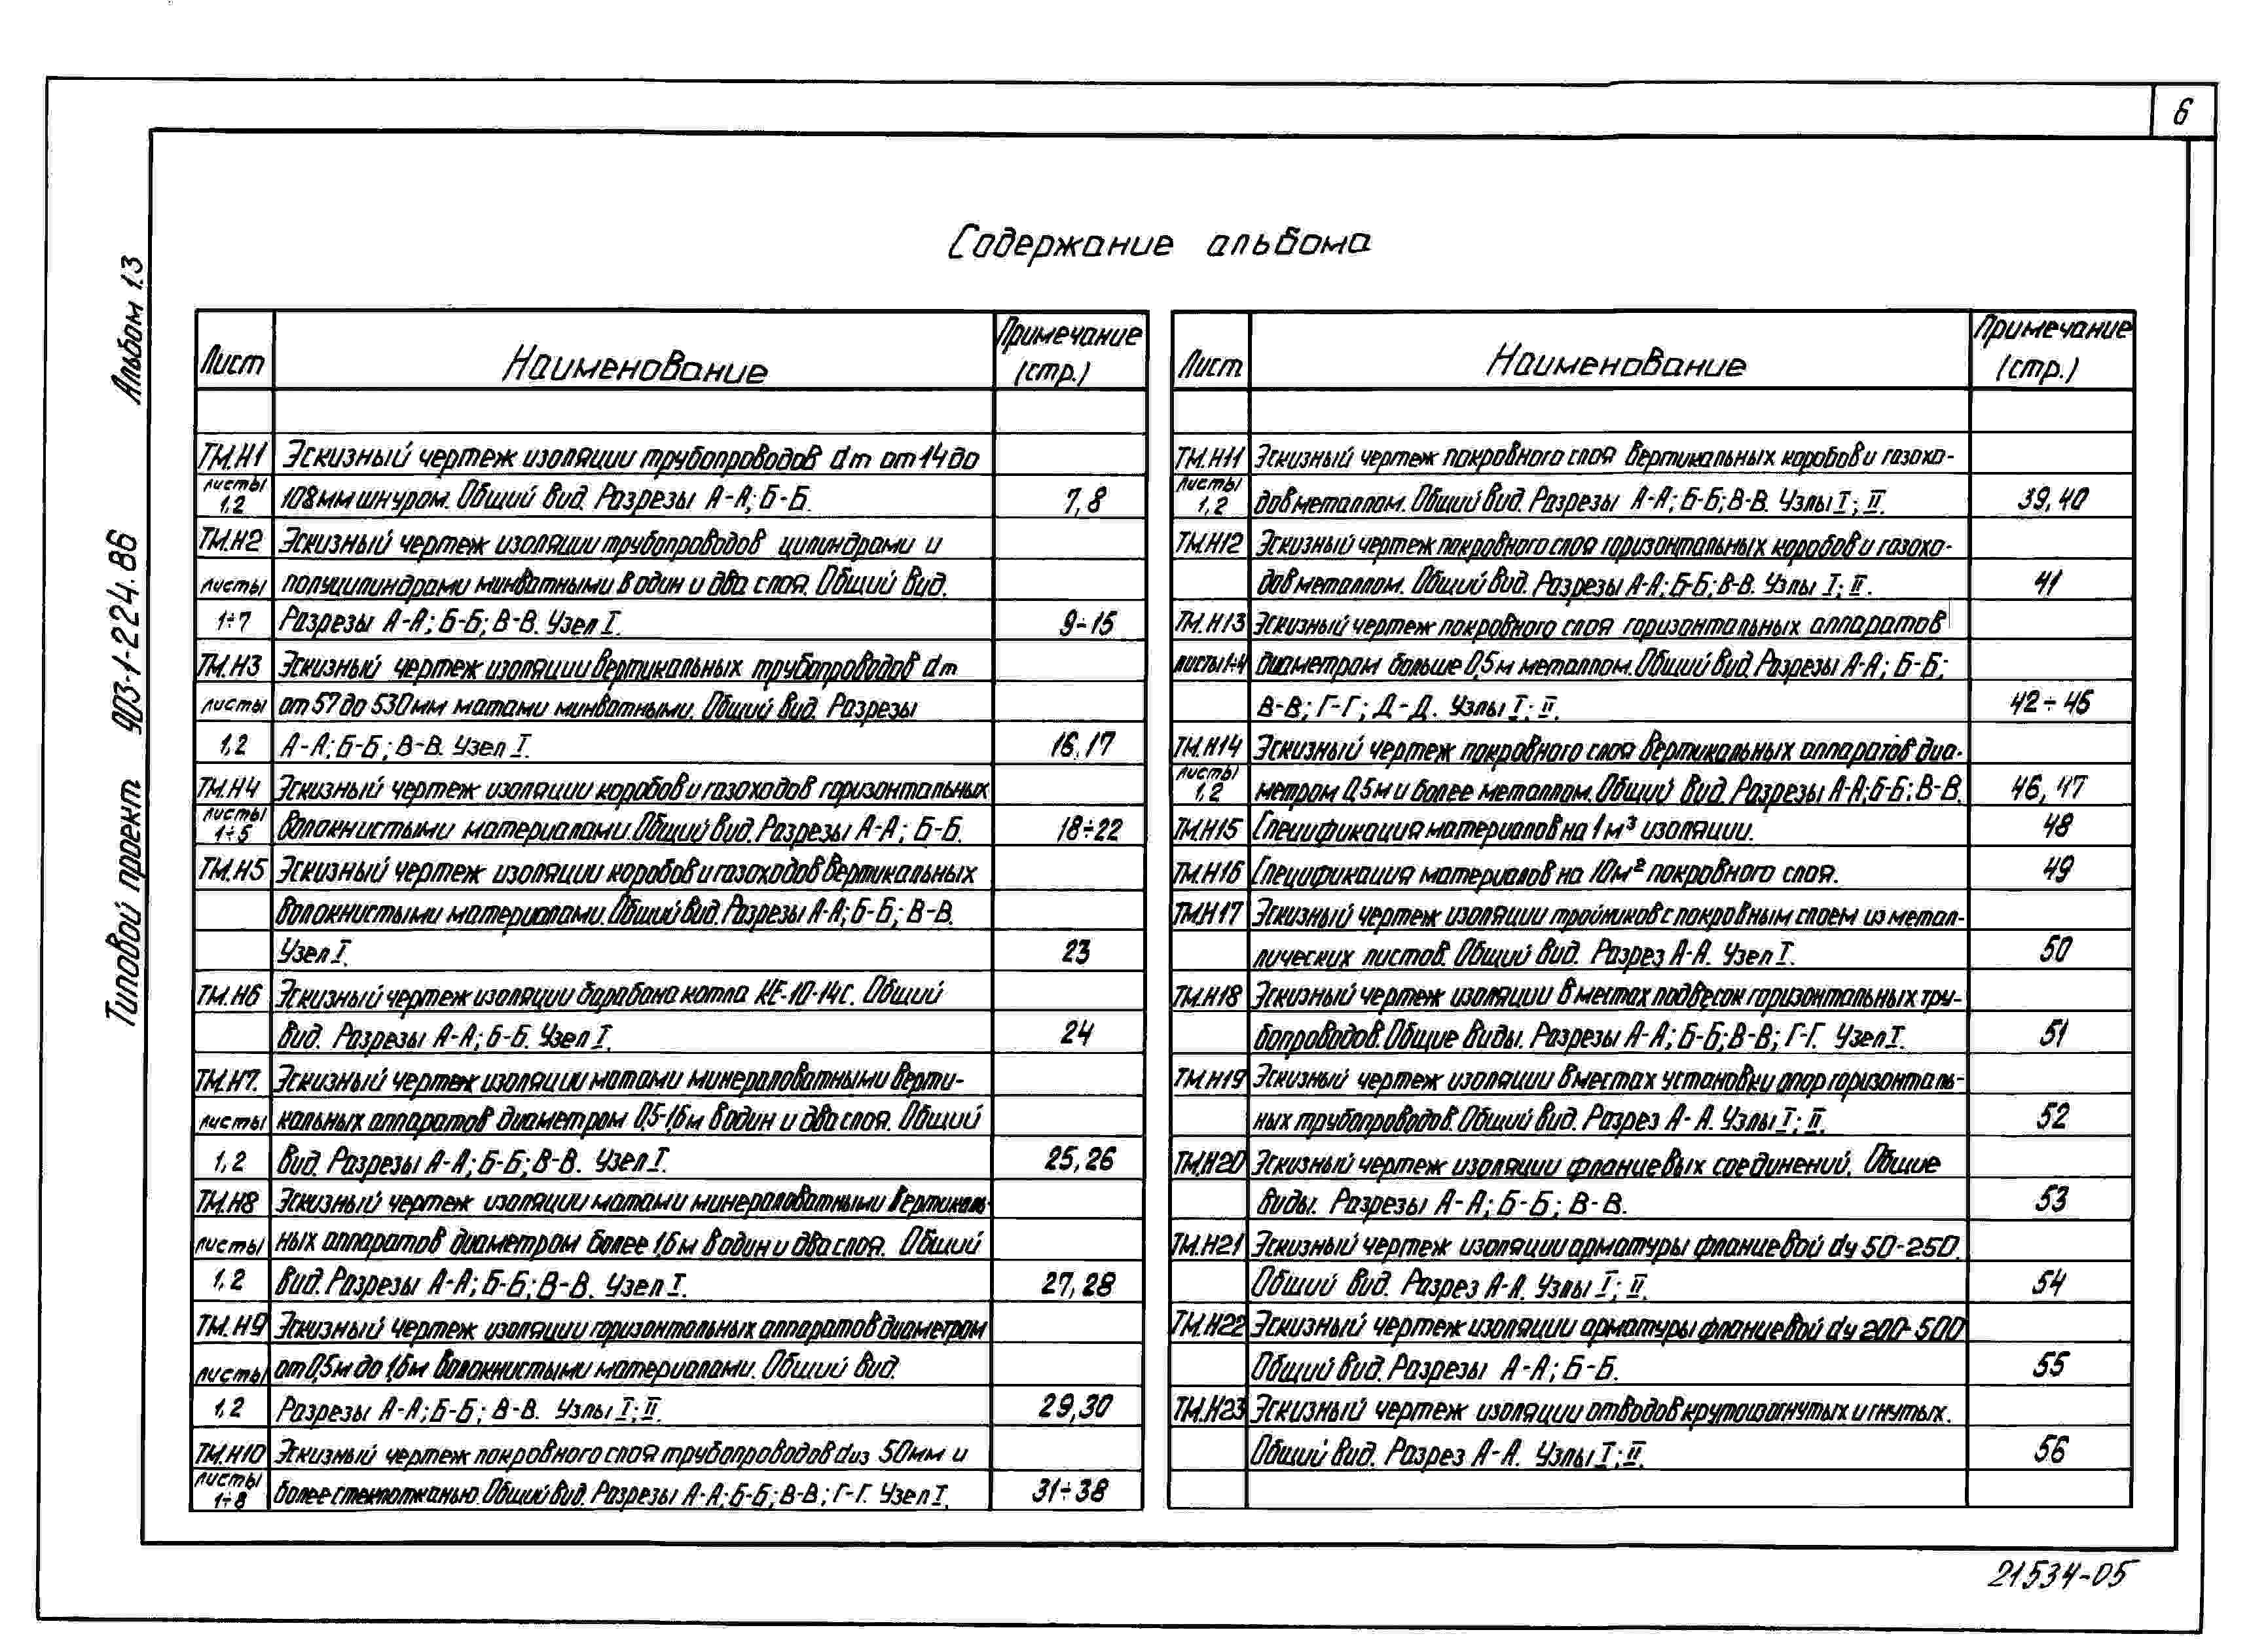 6
Содержание альбома
Альбом 1.3
Типовой проект 903-1-224.86
Лист Наименование Примечание (стр.)
ТМ.Н1 Эскизный чертеж изоляции трубопроводов dт от 14 до
листы 1,2 108мм шнуром. Общий вид. Разрезы А-А; Б-Б. 7, 8
ТМ.Н2 Эскизный чертеж изоляции трубопроводов цилиндрами и
листы полуцилиндрами минватными в один и два слоя. Общий вид.
1÷7 Разрезы А-А; Б-Б; В-В. Узел I. 9÷15
ТМ.Н3 Эскизный чертеж изоляции вертикальных трубопроводов dт
листы от 57 до 530мм матами минватными. Общий вид. Разрезы
1,2 А-А; Б-Б; В-В. Узел I. 16,17
ТМ.Н4 Эскизный чертеж изоляции коробов и газоходов горизонтальных
листы 1÷5 волокнистыми материалами. Общий вид. Разрезы А-А; Б-Б. 18÷22
ТМ.Н5 Эскизный чертеж изоляции коробов и газоходов вертикальных
волокнистыми материалами. Общий вид. Разрезы А-А; Б-Б; В-В.
Узел I. 23
ТМ.Н6 Эскизный чертеж изоляции барабана котла КЕ-10-14с. Общий
вид. Разрезы А-А; Б-Б. Узел I. 24
ТМ.Н7. Эскизный чертеж изоляции матами минераловатными верти-
листы кальных аппаратов диаметром 0,5-1,6м в один и два слоя. Общий
1,2 вид. Разрезы А-А; Б-Б; В-В. Узел I. 25, 26
ТМ.Н8 Эскизный чертеж изоляции матами минераловатными вертикаль-
листы ных аппаратов диаметром более 1,6м в один и два слоя. Общий
1,2 вид. Разрезы А-А; Б-Б; В-В. Узел I. 27, 28
ТМ.Н9 Эскизный чертеж изоляции горизонтальных аппаратов диаметром
листы от 0,5м до 1,6м волокнистыми материалами. Общий вид.
1,2 Разрезы А-А; Б-Б; В-В. Узлы I; II. 29,30
ТМ.Н10 Эскизный чертеж покровного слоя трубопроводов dиз 50мм и
листы 1÷8 более стеклотканью. Общий вид. Разрезы А-А; Б-Б; В-В; Г-Г. Узел I. 31÷38
Лист Наименование Примечание (стр.)
ТМ.Н11 Эскизный чертеж покровного слоя вертикальных коробов и газохо-
листы 1,2 дов металлом. Общий вид. Разрезы А-А; Б-Б; В-В. Узлы I; II. 39,40
ТМ.Н12 Эскизный чертеж покровного слоя горизонтальных коробов и газохо-
дов металлом. Общий вид. Разрезы А-А; Б-Б; В-В. Узлы I; II. 41
ТМ.Н13 Эскизный чертеж покровного слоя горизонтальных аппаратов
листы 1÷4 диаметром больше 0,5м металлом. Общий вид. Разрезы А-А; Б-Б;
В-В; Г-Г; Д-Д. Узлы I; II. 42÷45
ТМ.Н14 Эскизный чертеж покровного слоя вертикальных аппаратов диа-
листы 1,2 метром 0,5м и более металлом. Общий вид. Разрезы А-А; Б-Б; В-В. 46, 47
ТМ.Н15 Спецификация материалов на 1м³ изоляции. 48
ТМ.Н16 Спецификация материалов на 10м² покровного слоя. 49
ТМ.Н17 Эскизный чертеж изоляции тройников с покровным слоем из метал-
лических листов. Общий вид. Разрез А-А. Узел I. 50
ТМ.Н18 Эскизный чертеж изоляции в местах подвесок горизонтальных тру-
бопроводов. Общие виды. Разрезы А-А; Б-Б; В-В; Г-Г. Узел I. 51
ТМ.Н19 Эскизный чертеж изоляции в местах установки опор горизонталь-
ных трубопроводов. Общий вид. Разрез А-А. Узлы I; II. 52
ТМ.Н20 Эскизный чертеж изоляции фланцевых соединений. Общие
виды. Разрезы А-А; Б-Б; В-В. 53
ТМ.Н21 Эскизный чертеж изоляции арматуры фланцевой dу 50-250.
Общий вид. Разрез А-А. Узлы I; II. 54
ТМ.Н22 Эскизный чертеж изоляции арматуры фланцевой dу 200-500
Общий вид. Разрезы А-А; Б-Б. 55
ТМ.Н23 Эскизный чертеж изоляции отводов крутоизогнутых и гнутых.
Общий вид. Разрез А-А. Узлы I; II. 56
21534-05